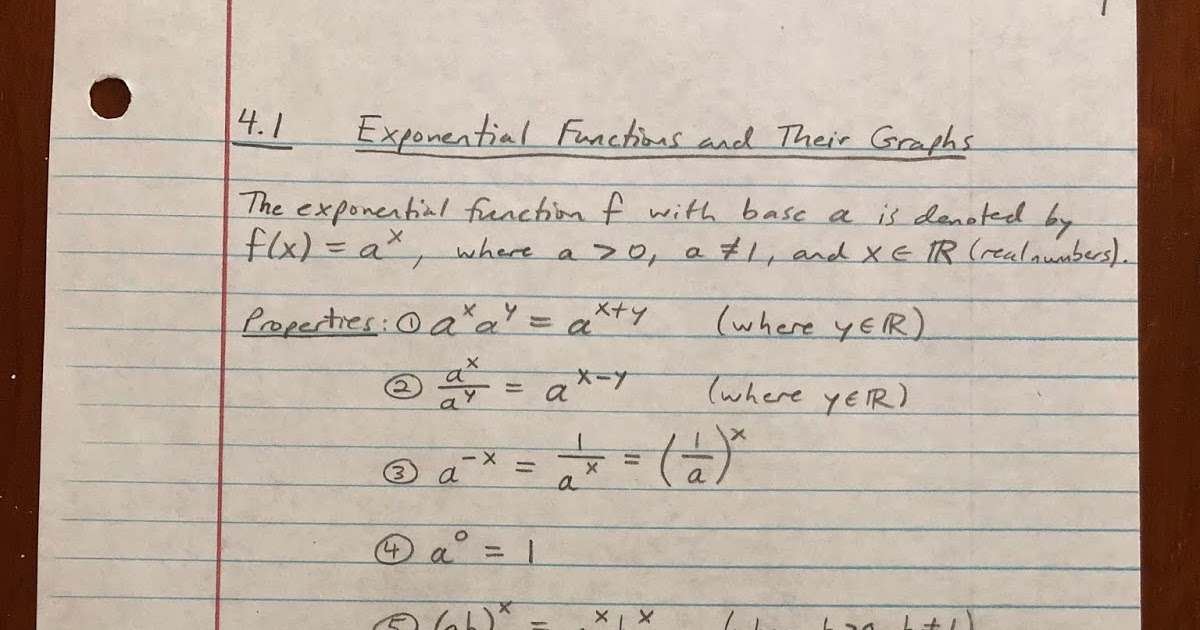 4.1 Exponential Functions and Their Graphs
The exponential function f with base a is denoted by
f(x) = aˣ, where a > 0, a ≠ 1, and x ∈ ℝ (real numbers).
Properties: ① aˣaʸ = aˣ⁺ʸ (where y ∈ ℝ)
② aˣ/aʸ = aˣ⁻ʸ (where y ∈ ℝ)
③ a⁻ˣ = 1/aˣ = (1/a)ˣ
④ a⁰ = 1
⑤ (ab)ˣ =